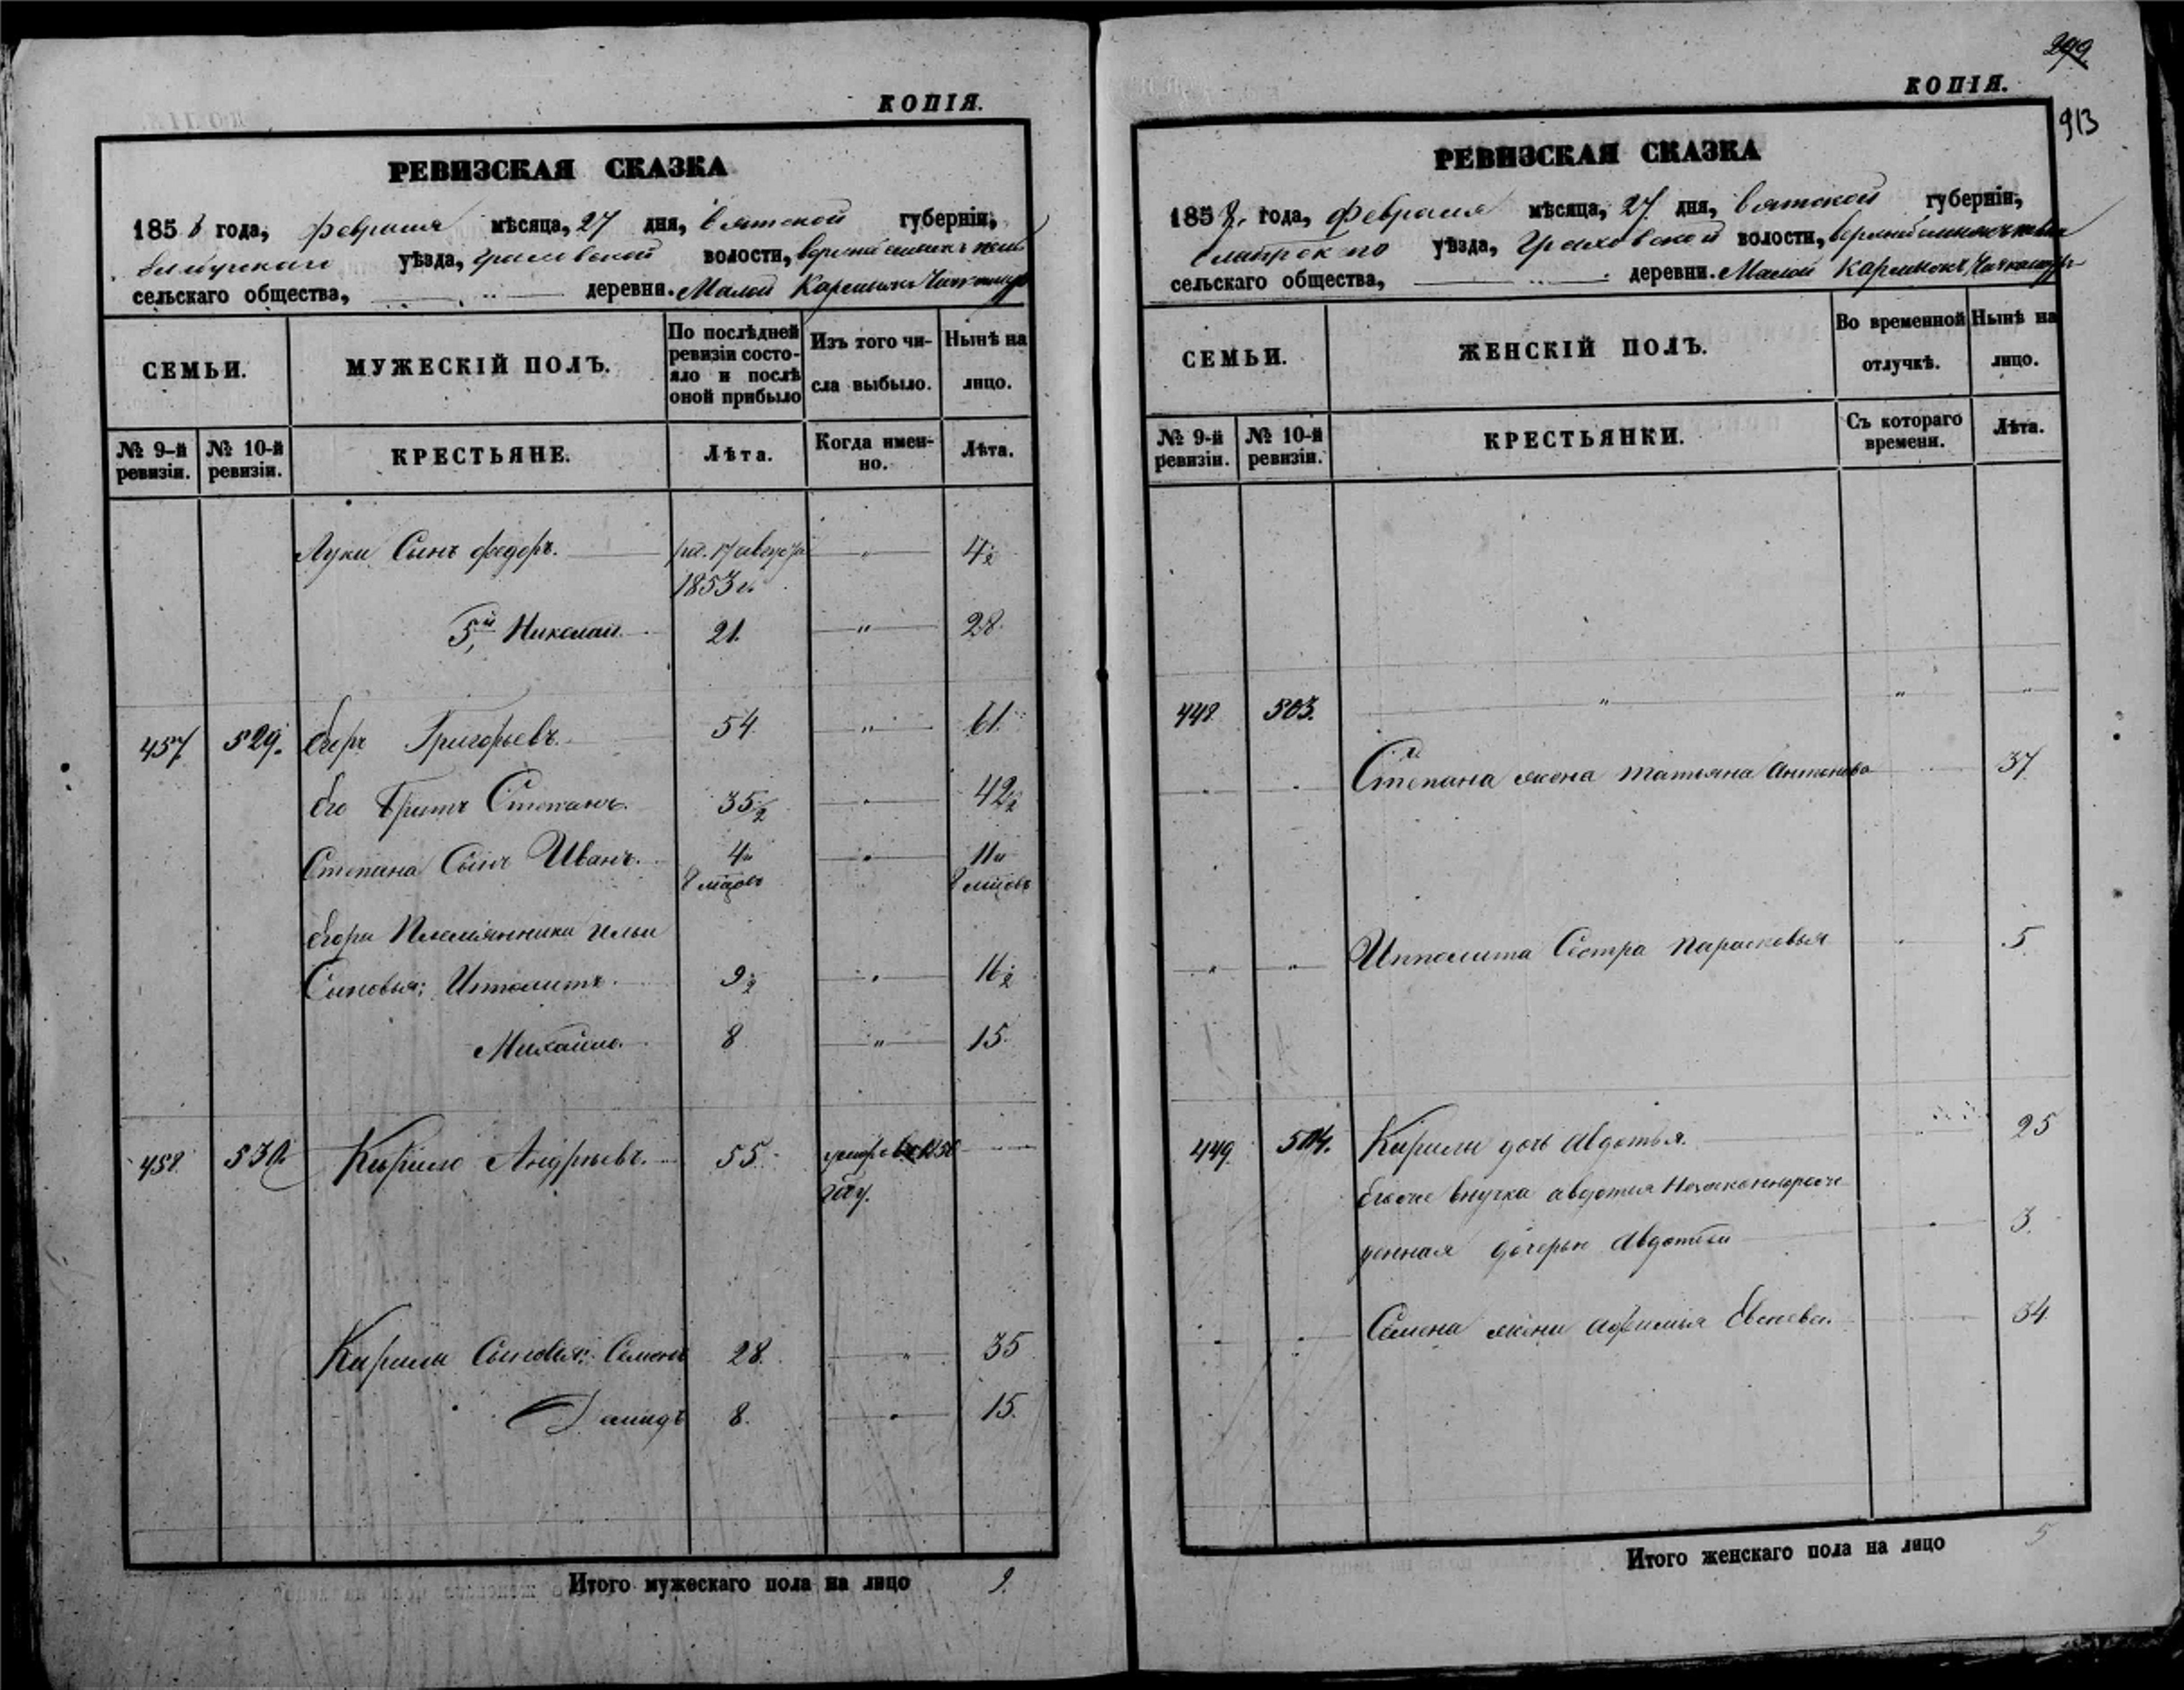 КОПІЯ.
РЕВИЗСКАЯ СКАЗКА
1858 года, февраля мѣсяца, 27 дня, Вятской губерніи,
уѣзда, Граховской волости,
сельскаго общества, деревни. Малой
СЕМЬИ.
МУЖЕСКІЙ ПОЛЪ.
По послѣдней ревизіи состо-
яло и послѣ оной прибыло
Изъ того чи-
сла выбыло.
Нынѣ на
лицо.
№ 9-й ревизіи.
№ 10-й ревизіи.
КРЕСТЬЯНЕ.
Лѣта.
Когда имен-
но.
Лѣта.
Луки Сынъ Федоръ. 17 августа " 4½
1853 г.
5й Николай 21. " 28.
457. 529. Егоръ Григорьевъ. 54 " 61.
Его Братъ Степанъ. 35½ " 42½
Степана Сынъ Иванъ. 4 и " 11 и
8 мѣцовъ 8 мѣцовъ
Егора Племянника Ильи
Сыновья: Ипполитъ. 9½ " 16½
Михайло. 8 " 15.
458. 530. Кирило Андреевъ. 55. 1856
году.
Кирила Сыновья: Семенъ 28. " 35
Демидъ 8. " 15.
Итого мужескаго пола на лицо 9.
299
КОПІЯ.
913
РЕВИЗСКАЯ СКАЗКА
1858 года, февраля мѣсяца, 27 дня, Вятской губерніи,
уѣзда, Граховской волости,
сельскаго общества, деревни. Малой
СЕМЬИ.
ЖЕНСКІЙ ПОЛЪ.
Во временной
отлучкѣ.
Нынѣ на
лицо.
№ 9-й ревизіи.
№ 10-й ревизіи.
КРЕСТЬЯНКИ.
Съ котораго времени.
Лѣта.
448. 503. " " "
" " Степана жена Татьяна Антонова 37
" " Ипполита Сестра Парасковья " 5.
449. 504. Кирилы дочь Авдотья. " 25
внучка Авдотья Незаконнорож-
денная дочерью Авдотьей " 3.
" " Семена жена Афимья 34
Итого женскаго пола на лицо 5